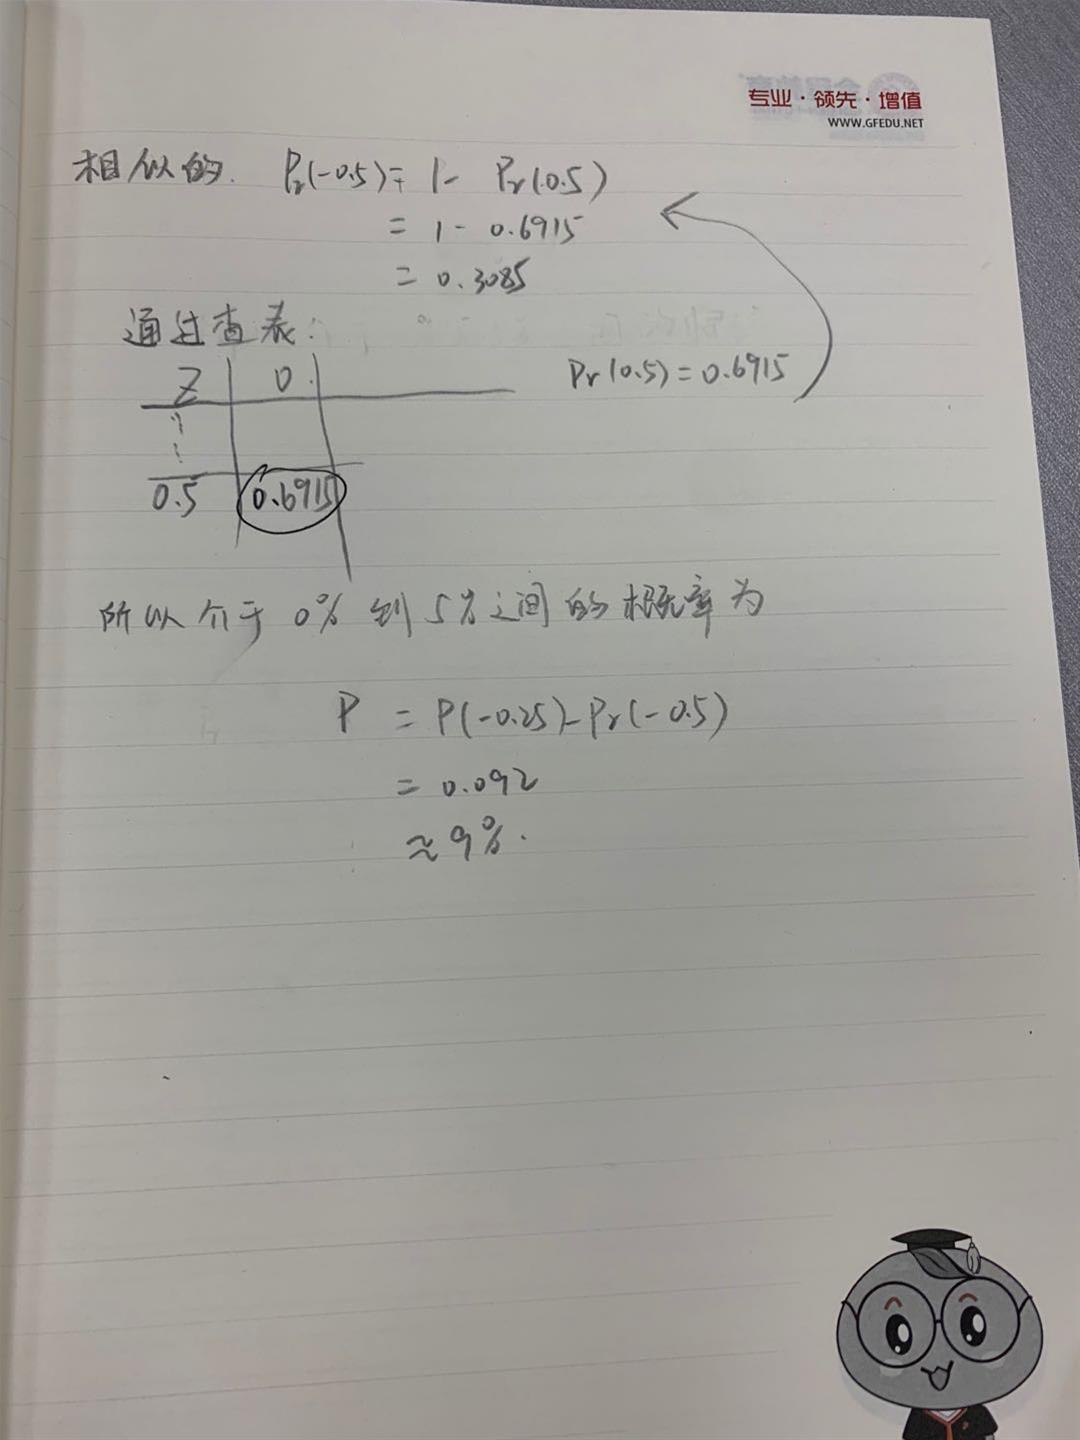 专业·领先·增值
WWW.GFEDU.NET
相似的. Pr(-0.5)= 1- Pr(0.5)
= 1- 0.6915
= 0.3085
通过查表:
Z 0.
Pr(0.5)=0.6915
0.5 0.6915
所以介于0%到5%之间的概率为
P = P(-0.25)-Pr(-0.5)
= 0.092
≈9%.